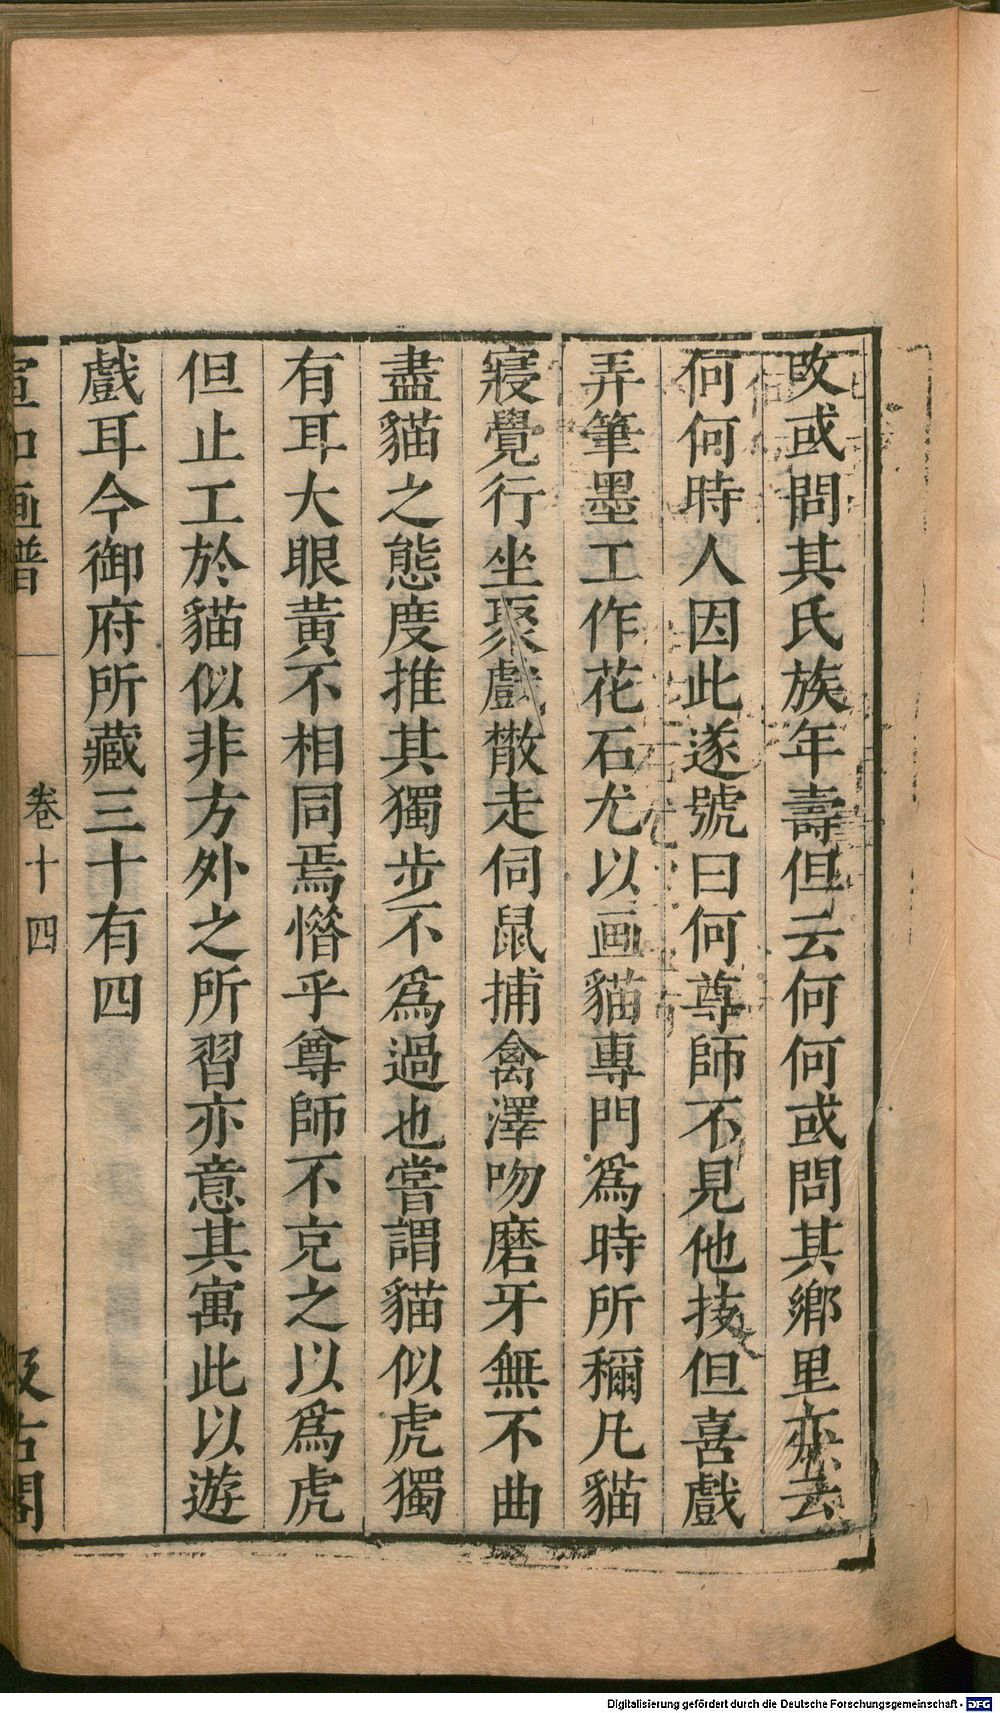 攻或問其氏族年壽但云何何或問其鄉里亦云
何何時人因此遂號曰何尊師不見他技但喜戲
弄筆墨工作花石尤以画貓專門爲時所稱凡貓
寢覺行坐聚戲散走伺鼠捕禽澤吻磨牙無不曲
盡貓之態度推其獨步不爲過也嘗謂貓似虎獨
有耳大眼黃不相同焉惜乎尊師不克之以爲虎
但止工於貓似非方外之所習亦意其寓此以遊
戲耳今御府所藏三十有四
宣和画譜
卷十四
汲古閣
Digitalisierung gefördert durch die Deutsche Forschungsgemeinschaft - DFG